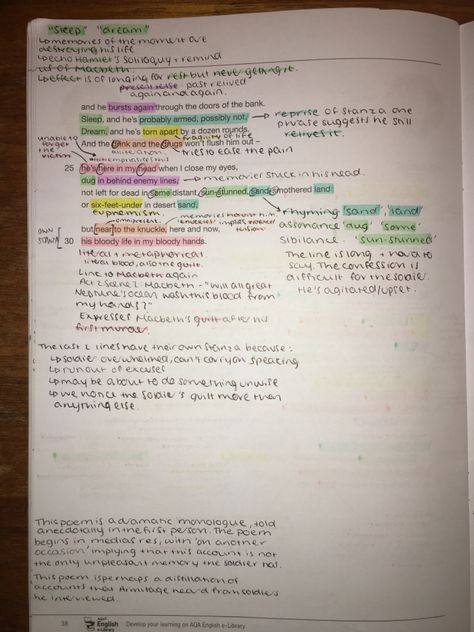 "Sleep" "dream"
↳ memories of the moment are
destroying his life
↳ echo Hamlet's soliloquy + remind
us of Macbeth.
↳ effect is of longing for rest but never getting it.
present tense past relived
again and again.
and he bursts again through the doors of the bank.
Sleep, and he's probably armed, possibly not.
→ reprise of stanza one
phrase suggests he still
relives it.
Dream, and he's torn apart by a dozen rounds.
fragility of life
And the drink and the drugs won't flush him out –
alliteration
→ tries to ease the pain
unable to
forget
the
victim
25 he's here in my head when I close my eyes,
dug in behind enemy lines,
→ memories stuck in his head.
not left for dead in some distant, sun-stunned, sand-smothered land
or six-feet-under in desert sand,
euphemism.
rhyming 'sand', 'land'
assonance 'dug' 'some'
sibilance. 'sun-stunned'
The line is long + hard to
say. The confession is
difficult for the soldier.
He's agitated/upset.
memories haunt him
own
stanza
but near to the knuckle, here and now,
30 his bloody life in my bloody hands.
literal + metaphorical
literal blood, also me guilt.
Line to Macbeth again
Act 2 Scene 2 Macbeth - "will all great
Neptune's ocean wash this blood from
my hands?"
Expresses Macbeth's guilt after his
first murder.
The last 2 lines have their own stanza because:
↳ soldier overwhelmed, can't carry on speaking
↳ run out of excuses
↳ may be about to do something unwise
↳ we notice the soldier's guilt more than
anything else.
This poem is a dramatic monologue, told
anecdotally in the first person. The poem
begins in medias res, with 'on another
occasion' implying that this account is not
the only unpleasant memory the soldier has.
This poem is perhaps a distillation of
accounts that Armitage heard from soldiers
he interviewed.
38 AQA English e-Library Develop your learning on AQA English e-Library